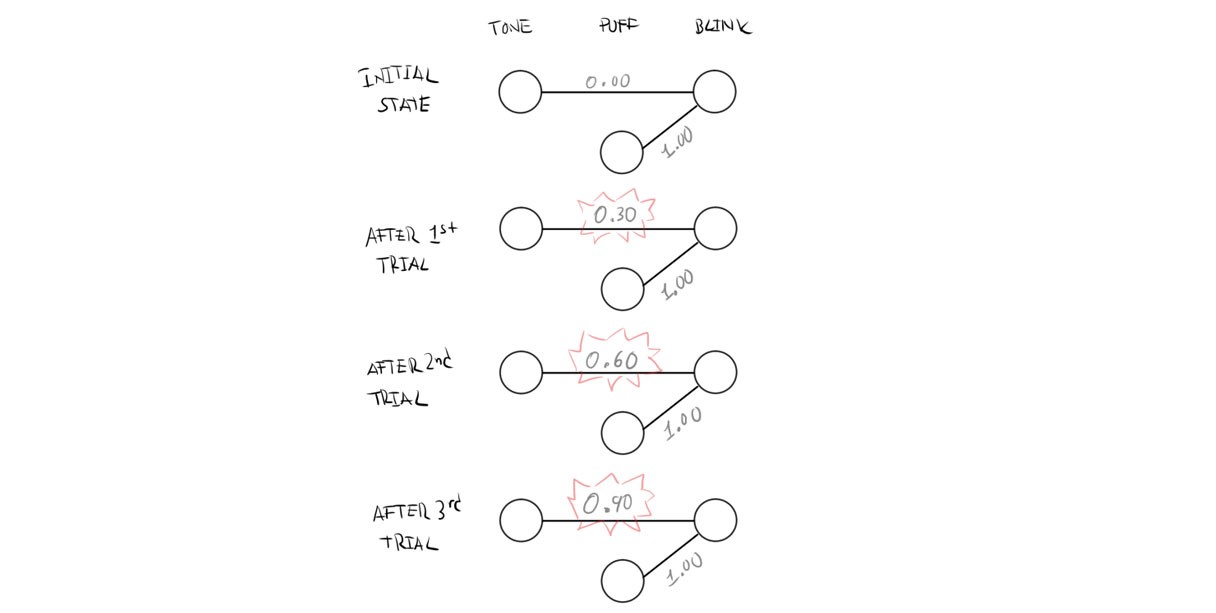 TONE PUFF BLINK
INITIAL
STATE
0.00
1.00
AFTER 1st
TRIAL
0.30
1.00
AFTER 2nd
TRIAL
0.60
1.00
AFTER 3rd
TRIAL
0.90
1.00